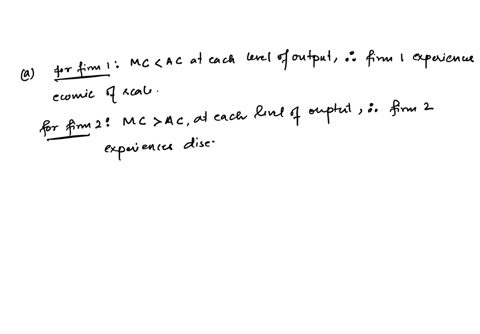 (a) for firm 1: MC < AC at each level of output, ∴ firm 1 experience
ecomic of scale.
for firm 2: MC > AC, at each level of ouptut, ∴ firm 2
experiences dise.